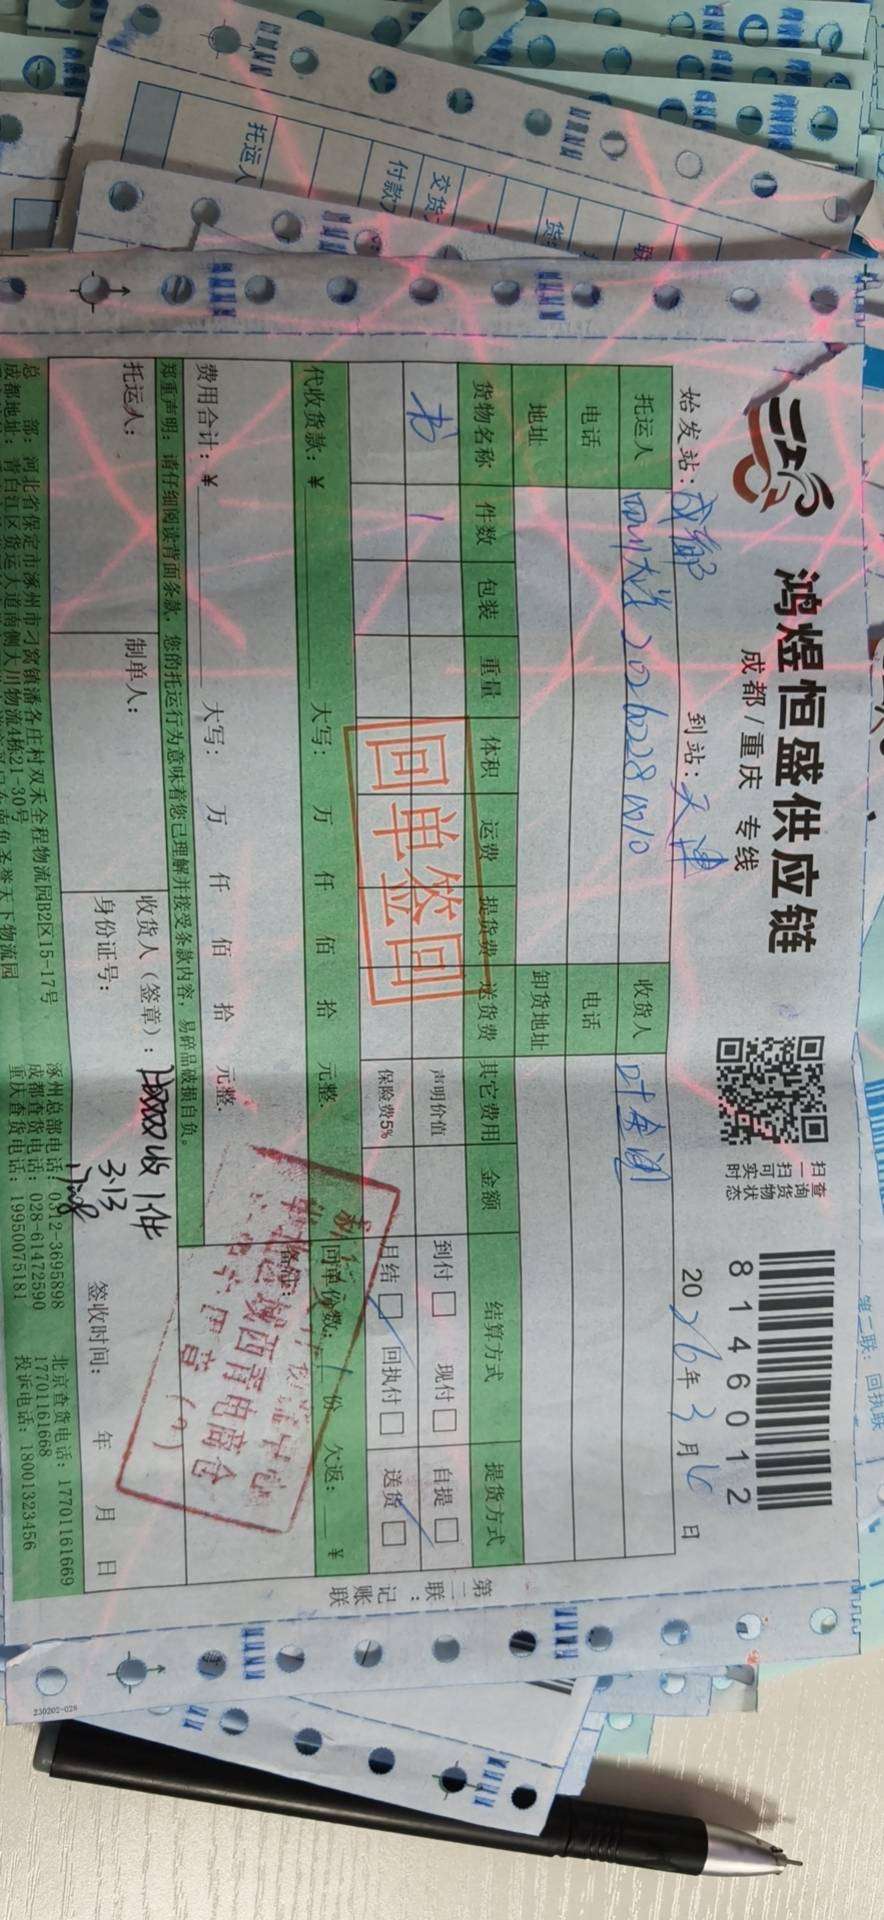 鸿煜恒盛供应链
成都/重庆 专线
扫一扫可实时
查询货物状态
8146012
始发站：成都
到站：天津
2026年3月6日
托运人
四川大学 2026028
收货人
叶金湖
电话
电话
地址
卸货地址
货物名称 件数 包装 重量 体积 运费 提货费 送货费 其它费用 金额 结算方式 提货方式
书 1
声明价值
到付□ 现付□ 自提□
保险费5%
月结□ 回执付□ 送货□
回单签回
代收货款：¥
大写： 万 仟 佰 拾 元整.
回单份数：1份 欠返： ¥
费用合计：¥
大写： 万 仟 佰 拾 元整.
备注：
郑重声明：请仔细阅读背面条款，您的托运行为意味着您已理解并接受条款内容；易碎品破损自负。
托运人：
制单人：
收货人（签章）：
收1件
3.13
身份证号：
签收时间： 年 月 日
总 部：河北省保定市涿州市刁窝镇潘各庄村双禾全程物流园B2区15-17号
涿州总部电话：0312-3695898
北京查货电话：17701161669
成都地址：青白江区货运大道南侧大川物流4栋21-30号
成都查货电话：028-61472590
17701161668
重庆查货电话：19950075181
投诉电话：18001323456
第二联：记账联
第二联：回执联
230202-028
托运人
付款
交货